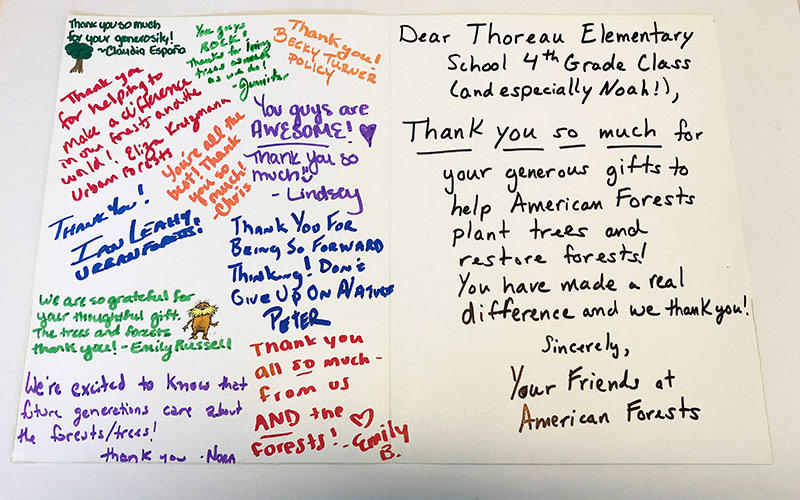 Thank you so much
for your generosity!
~Claudia España
You guys
ROCK!
Thanks for loving
trees as much
as we do!
-Jennifer
Thank you!
BECKY TURNER
POLICY
Thank you
for helping to
make a difference
in our forests and the
world! Eliza Kretzmann
Urban Forests
You're all the
best! Thank
you so
much!
-Chris
You guys are
AWESOME!
Thank you so
much
- Lindsey
THANK YOU!
IAN LEAHY,
URBAN FORESTS!
THANK YOU FOR
BEING SO FORWARD
THINKING! DON'T
GIVE UP ON NATURE
PETER
We are so grateful for
your thoughtful gift.
The trees and forests
thank you! -Emily Russell
We're excited to know that
future generations care about
the forests/trees!
thank you -Nora
Thank you
all so much -
from us
AND the
forests! -Emily
B.
Dear Thoreau Elementary
School 4th Grade Class
(and especially Noah!),
Thank you so much for
your generous gifts to
help American Forests
plant trees and
restore forests!
You have made a real
difference and we thank you!
Sincerely,
Your Friends at
American Forests